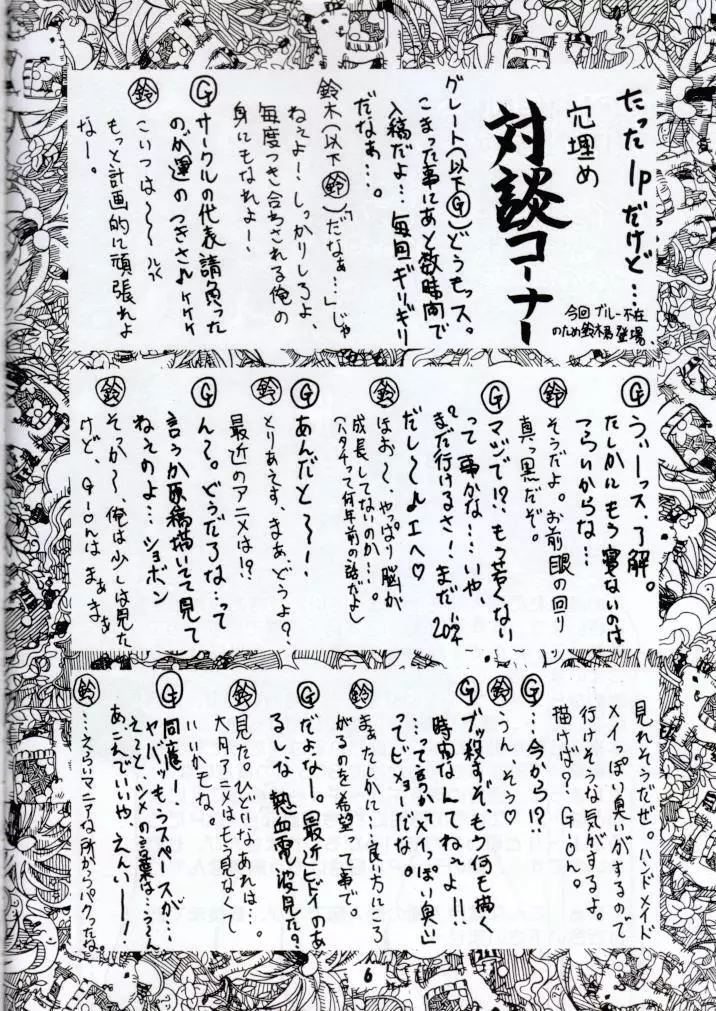 たった1Pだけど…
穴埋め
対談コーナー
今回ブルー不在
のため鈴木君登場。
グレート(以下Ⓖ)どうもッス。
こまった事にあと数時間で
入稿だよ…毎回ギリギリ
だなぁ…。
鈴木(以下㊙鈴)「だなぁ…」じゃ
ねぇよ!しっかりしろよ、
毎度つき合わされる俺の
身にもなれよー!
Ⓖ サークルの代表請負った
のが運のつきさ♪ケケケ
鈴 こいつは〜〜
もっと計画的に頑張れよ
なー。
Ⓖ うぃーっス、了解。
たしかにもう寝ないのは
つらいからな…
鈴 そうだよ。お前眼の回り
真っ黒だぞ。
Ⓖ マジで!?もう若くない
って事かな……いや、
まだ行けるさ!まだ20才
だし〜♪エヘ♡
鈴 ほお〜、やっぱり脳が
成長してないのか…。
(ハタチって何年前の話だよ)
Ⓖ あんだと〜!
鈴 とりあえず、まあどうよ?
最近のアニメは!?
Ⓖ ん〜。どうだろな…って
言うか原稿描いてて見て
ねぇのよ…ショボン
鈴 そっか〜、俺は少しは見た
けど、G-onはまぁまぁ
見れそうだぜ。ハンドメイド
メイっぽい臭いがするので
行けそうな気がするよ。
描けば?G-on。
Ⓖ …今から!?
鈴 うん、そう♡
Ⓖ ブッ殺すぞもう何も描く
時間なんてねぇよ!!
…って言うか"メイっぽい臭い"
ってビミョーだな。
鈴 まぁたしかに…良い方にころ
がるのを希望って事で
Ⓖ だよなー。最近ヒドイのあ
るしな 熱血電波見た?
鈴 見た。ひどいなあれは…。
大月アニメはもう見なくて
いいかもな。
Ⓖ 同感ー、
ヤバッもうスペースが…
えーと、シメの言葉は…う〜ん
あこんでいいや、えんいー!
鈴 …えらいマニアな所からパクったな。
6